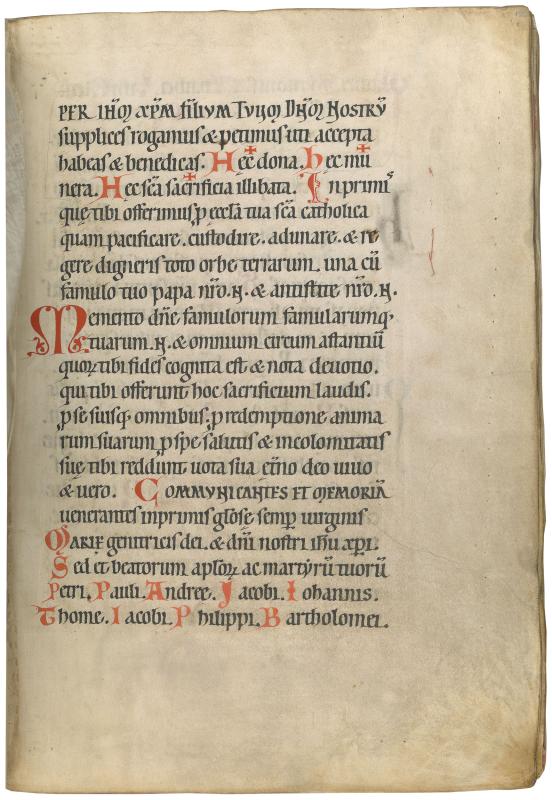 PER IHM XPM FILIVM TVVM DNM NOSTRV̄
supplices rogamus & petimus uti accepta
habeas & benedicas. Hęc dona. hec mu
nera. Hec scā sacrificia illibata. In primis
quę tibi offerimus p ecclā tua scā catholica
quam pacificare. custodire. adunare. & re
gere digneris toto orbe terrarum. una cū
famulo tuo papa nrō. N. & antistite nrō. N.
Memento dn̄e famulorum famularumq;
tuarum. N. & omnium circum astantiū
quoꝝ tibi fides cognita est & nota deuotio.
qui tibi offerunt hoc sacrificium laudis.
p se suisq; omnibus. p redemptione anima
rum suarum p spe salutis & incolomitatis
suę tibi reddunt uota sua et̄no deo uiuo
& uero. COMMVNICANTES ET MEMORIĀ
uenerantes inprimis gloṡę semp̄ uirginis
MARIĘ genitricis dei. & dn̄i nostri ihu xpi.
Sed et beatorum apl̄oꝝ ac martyrū tuorū
Petri. Pauli. Andreę. Jacobi. Iohannis.
Thome. Iacobi. Philippi. Bartholomei.